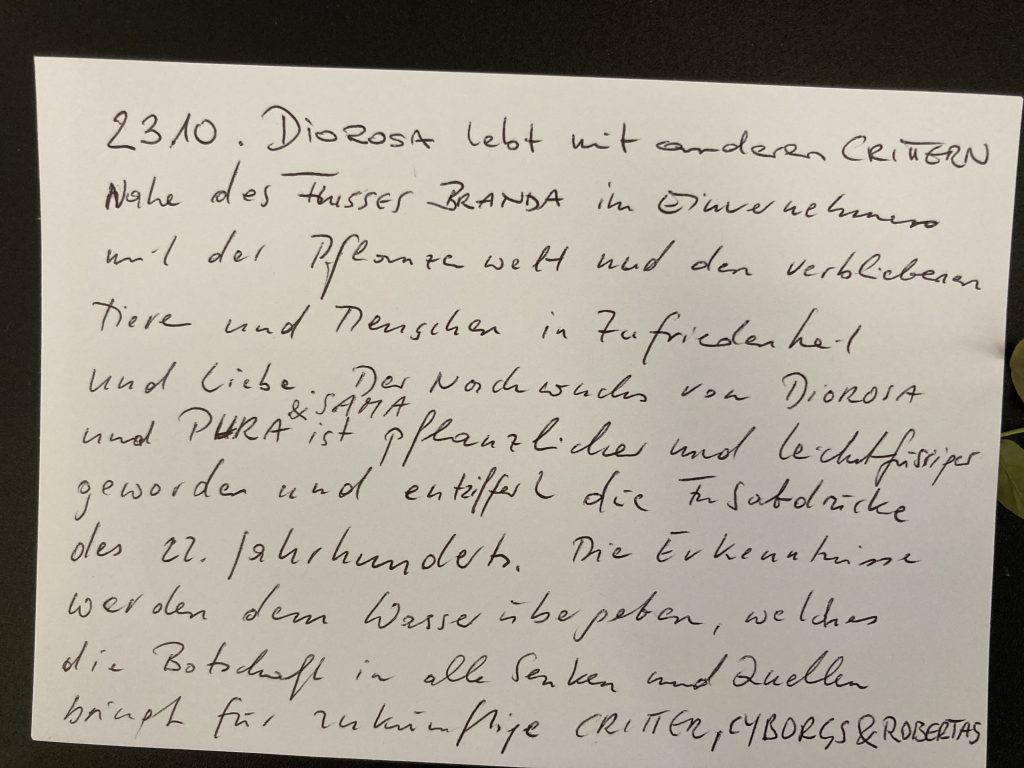 2310. DIOROSA lebt mit anderen CRITTERN
Nahe des FLUSSES BRANDA im Einvernehmen
mit der Pflanzenwelt und den verbliebenen
Tiere und Menschen in Zufriedenheit
und Liebe. Der Nachwuchs von DIOROSA
& SAMA
und PURA ist pflanzlicher und leichtfüssiger
geworden und entziffert die Fußabdrücke
des 22. Jahrhunderts. Die Erkenntnisse
werden dem Wasser übergeben, welches
die Botschaft in alle Senken und Quellen
bringt für zukünftige CRITTER, CYBORGS & ROBERTAS